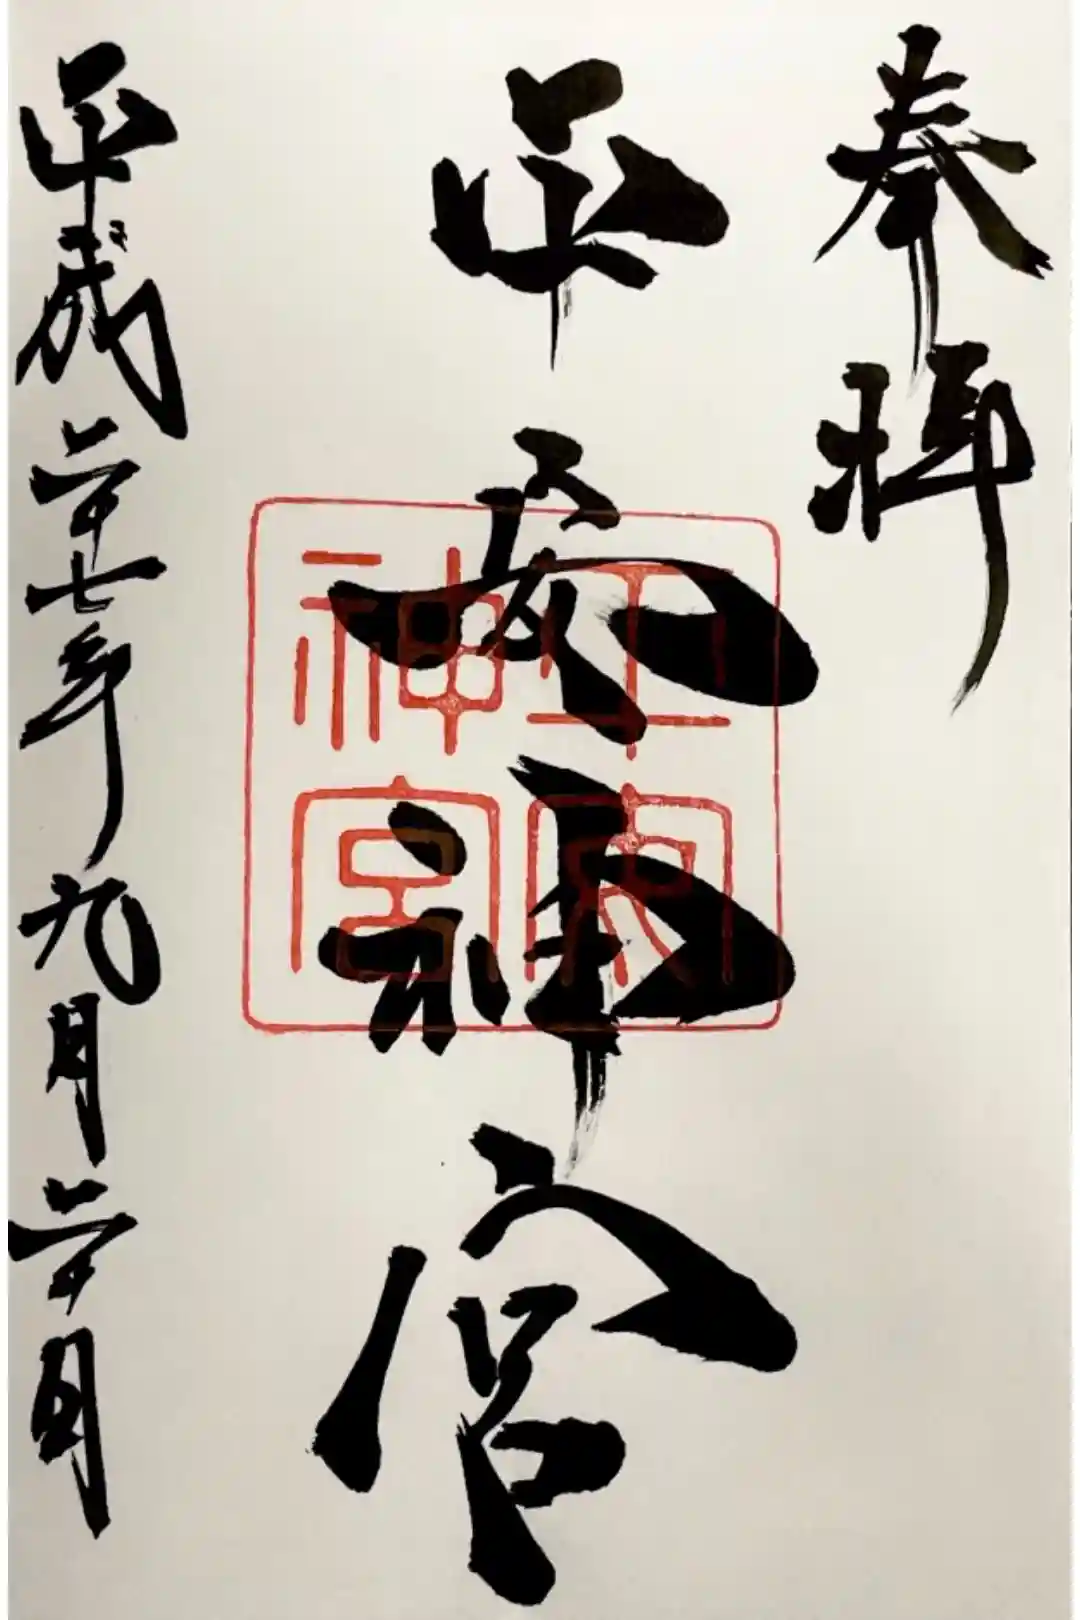 奉拝
平安神宮
平安神宮
平成二十七年九月二十日